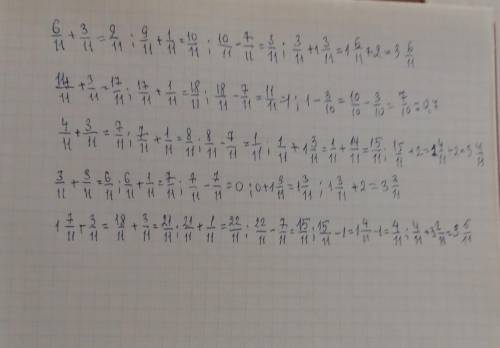 6/11 + 3/11 = 9/11 ; 9/11 + 1/11 = 10/11 ; 10/11 - 7/11 = 3/11 ; 3/11 + 1 3/11 = 1 6/11 + 2 = 3 6/11
14/11 + 3/11 = 17/11 ; 17/11 + 1/11 = 18/11 ; 18/11 - 7/11 = 11/11 = 1 ; 1 - 3/10 = 10/10 - 3/10 = 7/10 = 0,7
4/11 + 3/11 = 7/11 ; 7/11 + 1/11 = 8/11 ; 8/11 - 7/11 = 1/11 ; 1/11 + 1 3/11 = 1/11 + 14/11 = 15/11 ; 15/11 + 2 = 1 4/11 + 2 = 3 4/11
3/11 + 3/11 = 6/11 ; 6/11 + 1/11 = 7/11 ; 7/11 - 7/11 = 0 ; 0 + 1 3/11 = 1 3/11 ; 1 3/11 + 2 = 3 3/11
1 7/11 + 3/11 = 18/11 + 3/11 = 21/11 ; 21/11 + 1/11 = 22/11 ; 22/11 - 7/11 = 15/11 ; 15/11 - 1 = 1 4/11 - 1 = 4/11 ; 4/11 + 3 2/11 = 3 6/11